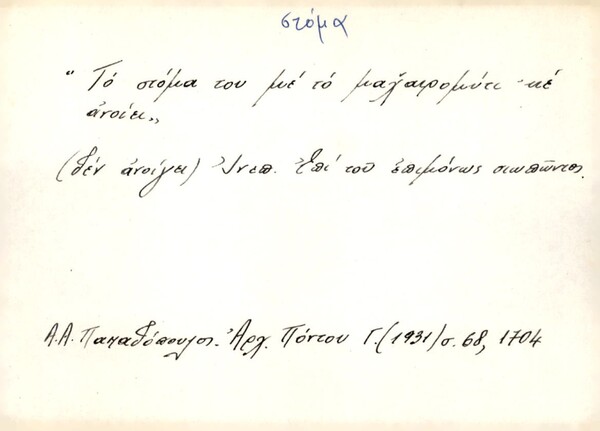 στόμα
“ Τό στόμα του μέ τό μαχ̌αιρομύτι 'κέ
ἀνοίει„
(δέν ἀνοίγει) Ἰνεπ. Ἐπί τοῦ ἐπιμόνως σιωπῶντος.
Α.Α. Παπαδόπουλος. Ἀρχ. Πόντου Γ. (1931) σ. 68, 1704